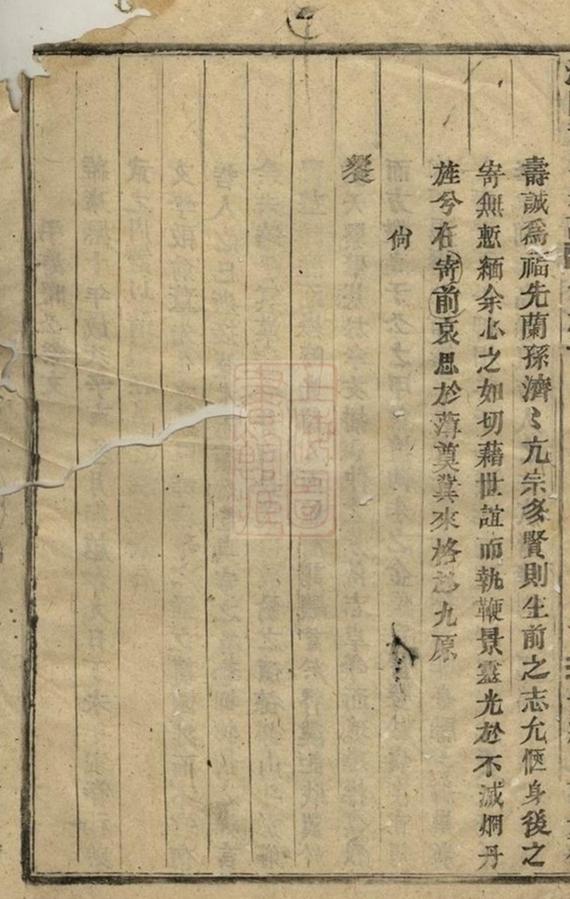 壽誠為福先蘭孫濟〻亢宗多賢則生前之志允愜身後之
寄無慙緬余心之如切藉世誼而執鞭景靈光於不滅烱丹
旌兮在前哀思於薄奠冀來格於九原
尙
饗